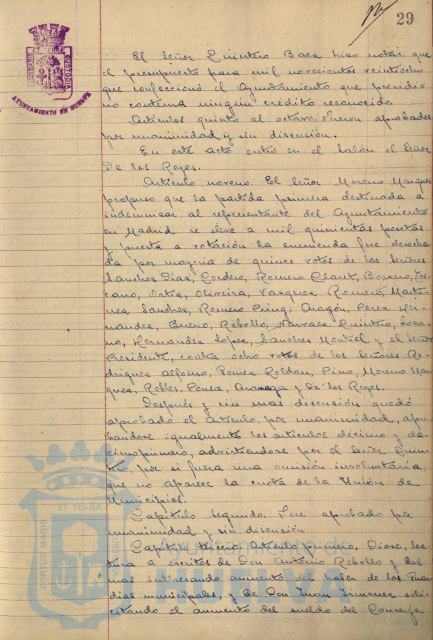 29
AYUNTAMIENTO DE HUELVA
El Señor Quintero Baez hizo notar que
el presupuesto para mil novecientos veintiocho
que confeccionó el Ayuntamiento que presidió
no contenía ningún crédito reconocido.
Artículos quinto al octavo. Fueron aprobados
por unanimidad y sin discusión.
En este acto entró en el Salón el Señor
De los Reyes.
Artículo noveno. El Señor Moreno Marquez
propuso que la partida primera destinada a
indemnizar al representante del Ayuntamiento
en Madrid se eleve a mil quinientas pesetas
y puesta a votación la enmienda fue desecha-
da por mayoría de quince votos de los Señores
Sanchez Diaz, Cordero, Romero
Oliveira, Vazquez Romero, Marti-
nez Sanchez, Romero Aragón, Perez Her-
nandez, Bueno, Rebollo, Narvaez Quintero,
Hernandez Lopez, Sanchez Montiel y el Señor
Presidente, contra ocho votos de los Señores Ro-
driguez Alfonso, Ponce Roldan, Pino, Moreno Mar-
quez, Robles, Ponsa, y De los Reyes.
Después y sin mas discusión quedó
aprobado el Artículo, por unanimidad, apro-
bandose igualmente los artículos décimo y de-
cimoprimero, advirtiendose por el Señor Quin-
tero, por si fuera una omisión involuntaria,
que no aparece la cuota de la Unión de
Municipios.
Capítulo Segundo. Fue aprobado por
unanimidad y sin discusión.
Capítulo tercero. Artículo primero. Diose lec-
tura a escritos de Don Antonio Rebollo y
mas interesando aumento del haber de los Guar-
dias municipales, y de Don Juan Jimenez soli-
citando el aumento del sueldo del Conserje